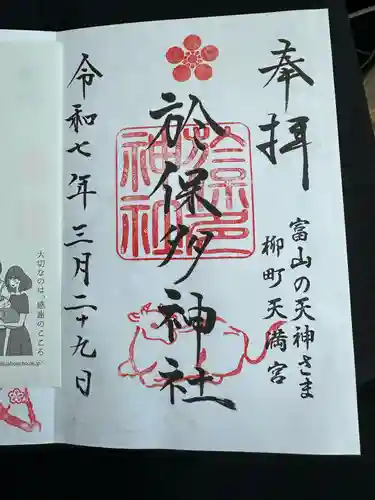 奉拝
富山の天神さま
柳町天満宮
於保多神社
令和七年三月二十九日
大切なのは、感謝のこころ